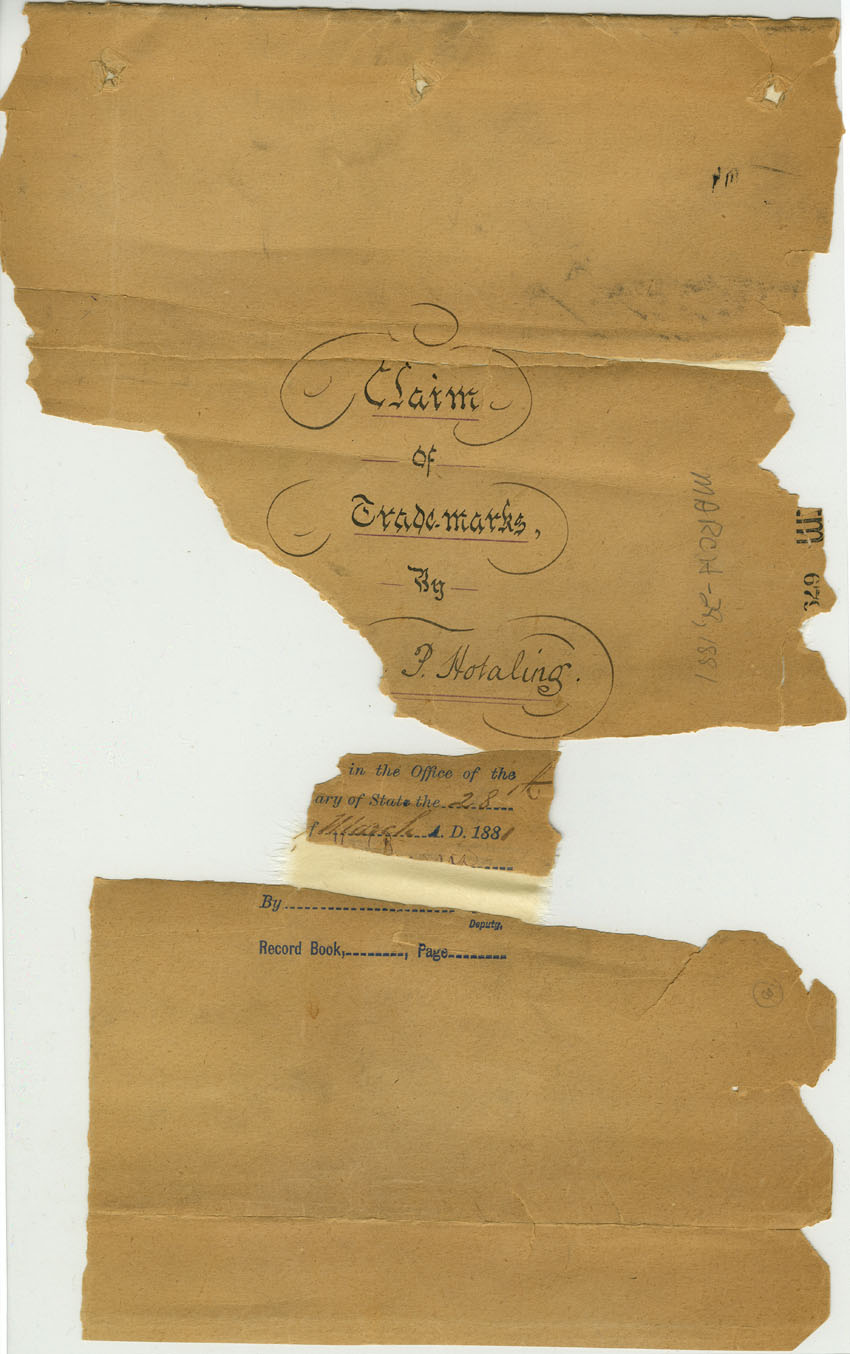 Claim
of
Trade-marks,
By
P. Hotaling.
MARCH-28, 1881
679
in the Office of the
ary of State the 28th
f March A. D. 1881
By
Deputy.
Record Book, , Page